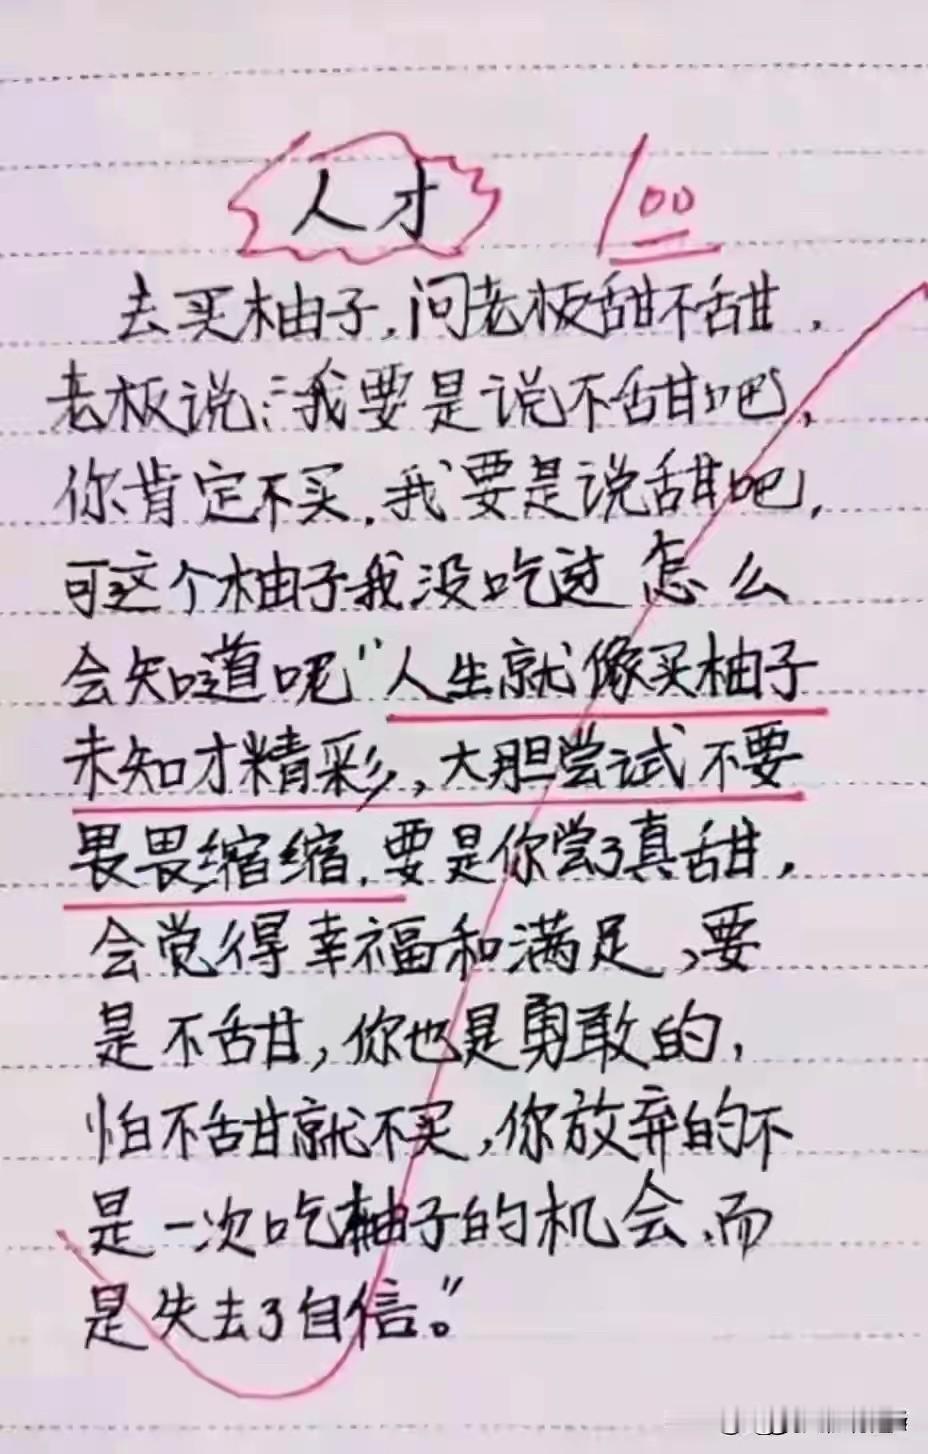 人才 100
去买柚子,问老板甜不甜,
老板说:"我要是说不甜吧,
你肯定不买,我要是说甜吧,
可这个柚子我没吃过 怎么
会知道呢"人生就像买柚子
未知才精彩,大胆尝试不要
畏畏缩缩,要是你尝了真甜,
会觉得幸福和满足,要
是不甜,你也是勇敢的,
怕不甜就不买,你放弃的不
是一次吃柚子的机会,而
是失去了自信。"